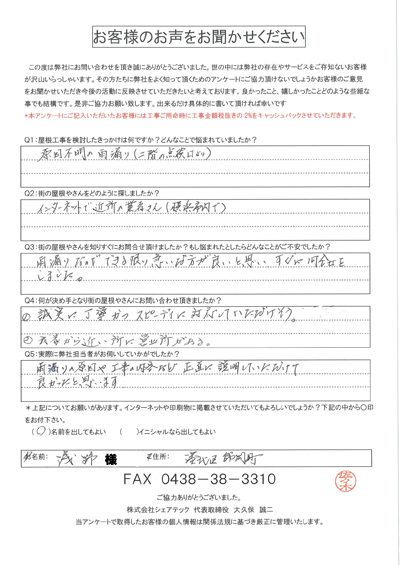 お客様のお声をお聞かせください
この度は弊社にお問い合わせを頂き誠にありがとうございました。世の中には弊社の存在やサービスをご存知ないお客様
が沢山いらっしゃいます。その方たちに弊社をよく知って頂くためのアンケートにご協力頂けないでしょうかお客様のご意見
をお聞かせいただき今後の活動に反映させていただきたいと考えております。良かったこと、嬉しかったことどのような些細な
事でも結構です。是非ご協力お願い致します。出来るだけ具体的に書いて頂ければ幸いです
*本アンケートにご記入いただいたお客様には工事ご用命時に工事金額税抜きの 2%をキャッシュバックさせていただきます。
Q1:屋根工事を検討したきっかけは何ですか？どんなことで悩まれていましたか？
原因不明の雨漏り(二階の点検口より)
Q2:街の屋根やさんをどのように探しましたか？
インターネットで近所の業者さん(横浜市内で)
Q3:街の屋根やさんを知りすぐにお問合せ頂けましたか？もし悩まれたとしたらどんなことがご不安でしたか？
雨漏りなのでできる限り急いだ方が良いと思い すぐに問合せを
しました。
Q4:何が決め手となり街の屋根やさんにお問い合わせ頂きましたか？
① 誠実に丁寧かつスピーディに対応していただけそう。
② 我家から近い所に営業所がある。
Q5:実際に弊社担当者がお伺いしていかがでしたか？
雨漏りの原因や工事の内容など 正直に説明していただけて
良かったと思います
* 上記についてお願いがあります。インターネットや印刷物に掲載させていただいてもよろしいでしょうか？下記の中から〇印
をお付下さい。
(〇)名前を出してもよい ( )イニシャルなら出してもよい
お名前: 様 ご住所:
佐々木
FAX 0438-38-3310
ご協力ありがとうございました。
株式会社シェアテック 代表取締役 大久保 誠二
当アンケートで取得したお客様の個人情報は関係法規に基づき厳正に管理いたします。